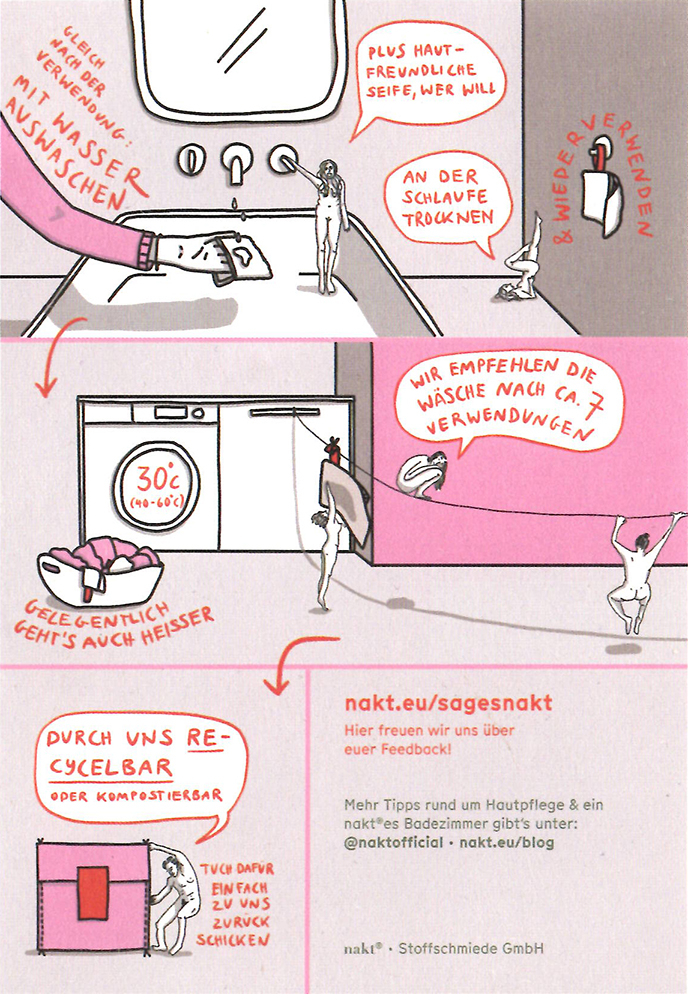 GLEICH
NACH DER
VERWENDUNG:
MIT WASSER
AUSWASCHEN
PLUS HAUT-
FREUNDLICHE
SEIFE, WER WILL
AN DER
SCHLAUFE
TROCKNEN
& WIEDERVERWENDEN
WIR EMPFEHLEN DIE
WÄSCHE NACH CA. 7
VERWENDUNGEN
30°C
(40-60°C)
GELEGENTLICH
GEHT'S AUCH HEISSER
DURCH UNS RE-
CYCELBAR
ODER KOMPOSTIERBAR
TUCH DAFÜR
EINFACH
ZU UNS
ZURÜCK
SCHICKEN
nakt.eu/sagesnakt
Hier freuen wir uns über
euer Feedback!
Mehr Tipps rund um Hautpflege & ein
nakt®es Badezimmer gibt's unter:
@naktofficial • nakt.eu/blog
nakt® • Stoffschmiede GmbH